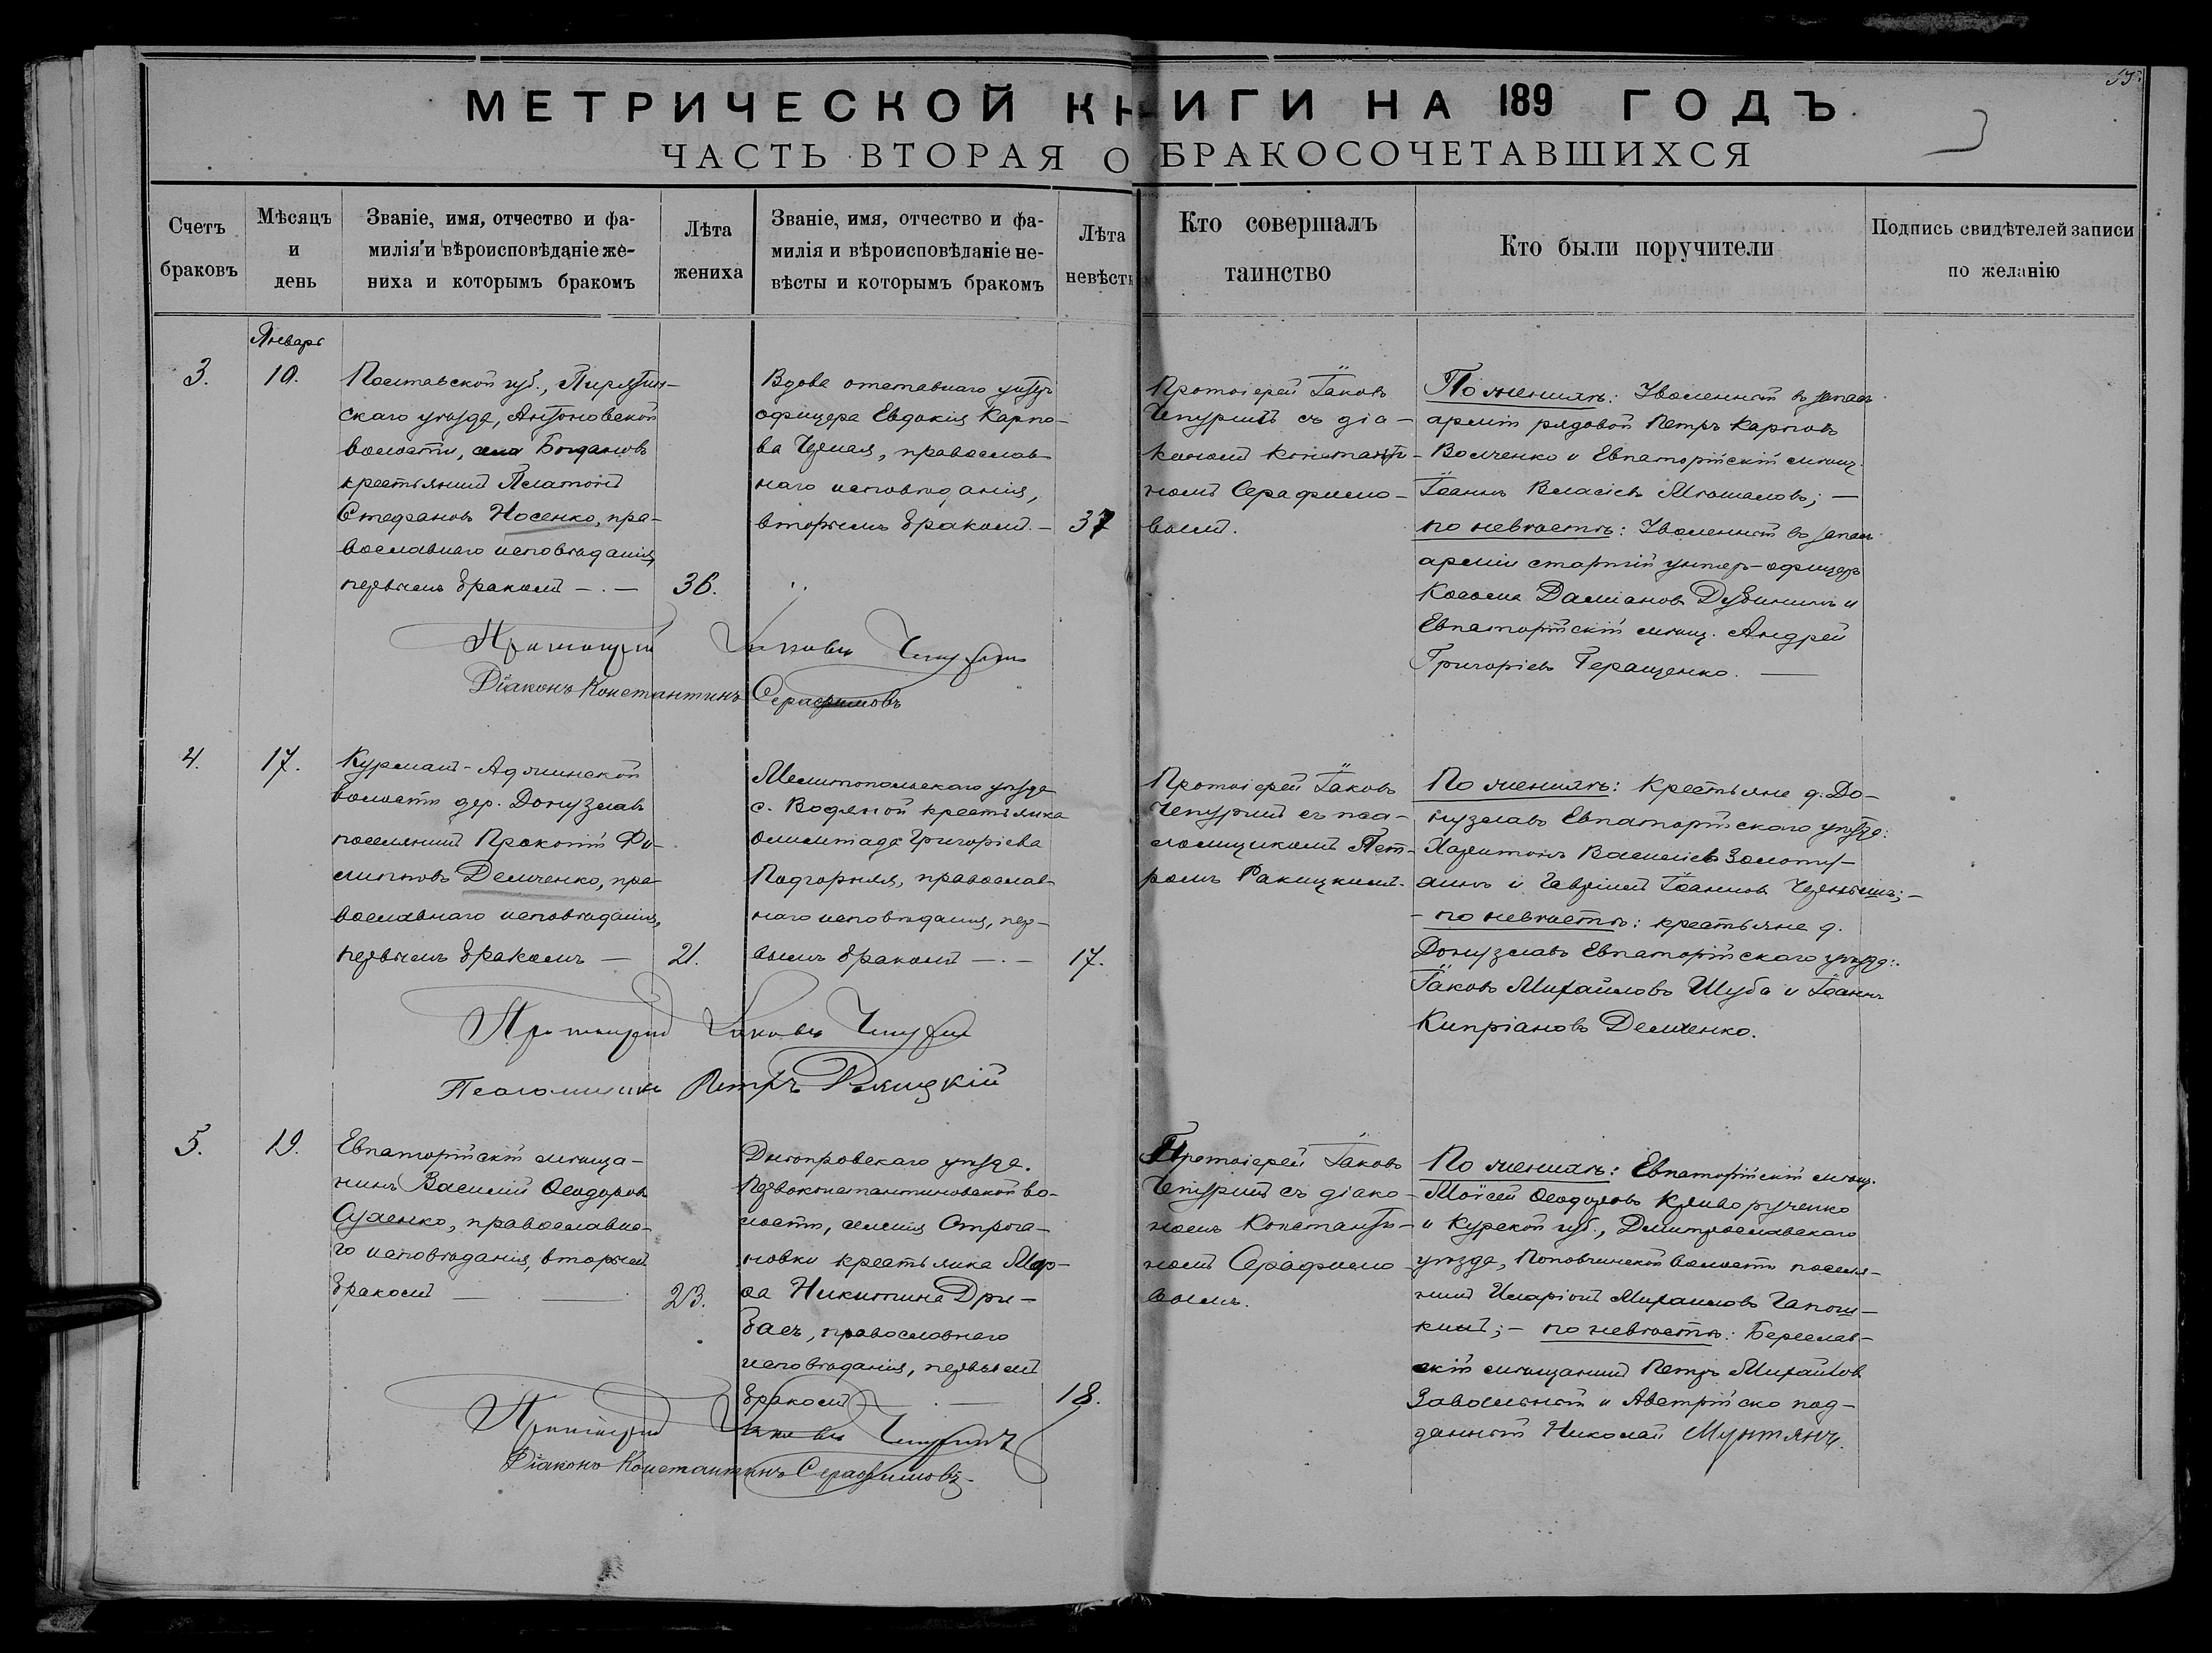 55.
МЕТРИЧЕСКОЙ КНИГИ НА 189 ГОДЪ
ЧАСТЬ ВТОРАЯ О БРАКОСОЧЕТАВШИХСЯ
Счетъ
браковъ
Мѣсяцъ
и
день
Званіе, имя, отчество и фа-
милія и вѣроисповѣданіе же-
ниха и которымъ бракомъ
Лѣта
жениха
Званіе, имя, отчество и фа-
милія и вѣроисповѣданіе не-
вѣсты и которымъ бракомъ
Лѣта
невѣсты
Кто совершалъ
таинство
Кто были поручители
Подпись свидѣтелей записи
по желанію
Январь
3.
10.
Полтавской губ., Пирятин-
скаго уѣзда, Антоновской
волости, села Богдановъ
крестьянинъ Платонъ
Стефановъ Носенко, пра-
вославнаго исповѣданія,
первымъ бракомъ
36.
Вдова отставнаго унтеръ
офицера Евдокія Карпо-
ва Черная, православ-
наго исповѣданія,
вторымъ бракомъ. —
37
Протоіерей Іаковъ
Чепуринъ съ діа-
кономъ Константи-
номъ Серафимо-
вымъ.
По женихѣ: Уволенный въ запасъ
арміи рядовой Петръ Карповъ
Волченко и Евпаторійскій мѣщ.
Іоаннъ Власіевъ Мошаловъ; —
по невѣстѣ: Уволенный въ запасъ
арміи старшій унтеръ-офицеръ
Косьма Даміановъ Дубининъ и
Евпаторійскій мѣщ. Андрей
Григоріевъ Геращенко. —
Протоіерей Іаковъ Чепуринъ
Діаконъ Константинъ Серафимовъ
4.
17.
Курманъ-Аджинской
волости дер. Донузлавъ
поселянинъ Прокопій Фи-
липповъ Демченко, пра-
вославнаго исповѣданія,
первымъ бракомъ —
21.
Мелитопольскаго уѣзда
с. Водяной крестьянка
Олимпіада Григоріева
Подгорняя, православ-
наго исповѣданія, пер-
вымъ бракомъ
17.
Протоіерей Іаковъ
Чепуринъ съ пса-
ломщикомъ Пет-
ромъ Ракицкимъ.
По женихѣ: Крестьяне д. До-
нузлавъ Евпаторійскаго уѣзда:
Харитонъ Василіевъ Золоту-
хинъ и Гавріилъ Іоанновъ
— по невѣстѣ: крестьяне д.
Донузлавъ Евпаторійскаго уѣзда:
Іаковъ Михайловъ Шуба и Іоаннъ
Кипріановъ Демченко.
Протоіерей Іаковъ Чепуринъ
Псаломщикъ Петръ Ракицкій
5.
19.
Евпаторійскій мѣща-
нинъ Василій Ѳеодоровъ
православна-
го исповѣданія, вторымъ
бракомъ —
23.
Днѣпровскаго уѣзда.
Первоконстантиновской во-
лости, селенія Строга-
новки крестьянка Мар-
ѳа Никитина Дри-
басъ, православнаго
исповѣданія, первымъ
бракомъ
18.
Протоіерей Іаковъ
Чепуринъ съ діако-
номъ Константи-
номъ Серафимо-
вымъ.
По женихѣ: Евпаторійскій мѣщ.
Моѵсей Ѳеодоровъ Криворученко
и Курской губ., Дмитріевскаго
уѣзда, Поповкинской волости поселя-
нинъ Иларіонъ Михаиловъ Гапош-
кинъ; — по невѣстѣ: Береслав-
скій мѣщанинъ Петръ Михайловъ
и Австрійско под-
данный Николай Мунтянъ.
Протоіерей Іаковъ Чепуринъ
Діаконъ Константинъ Серафимовъ